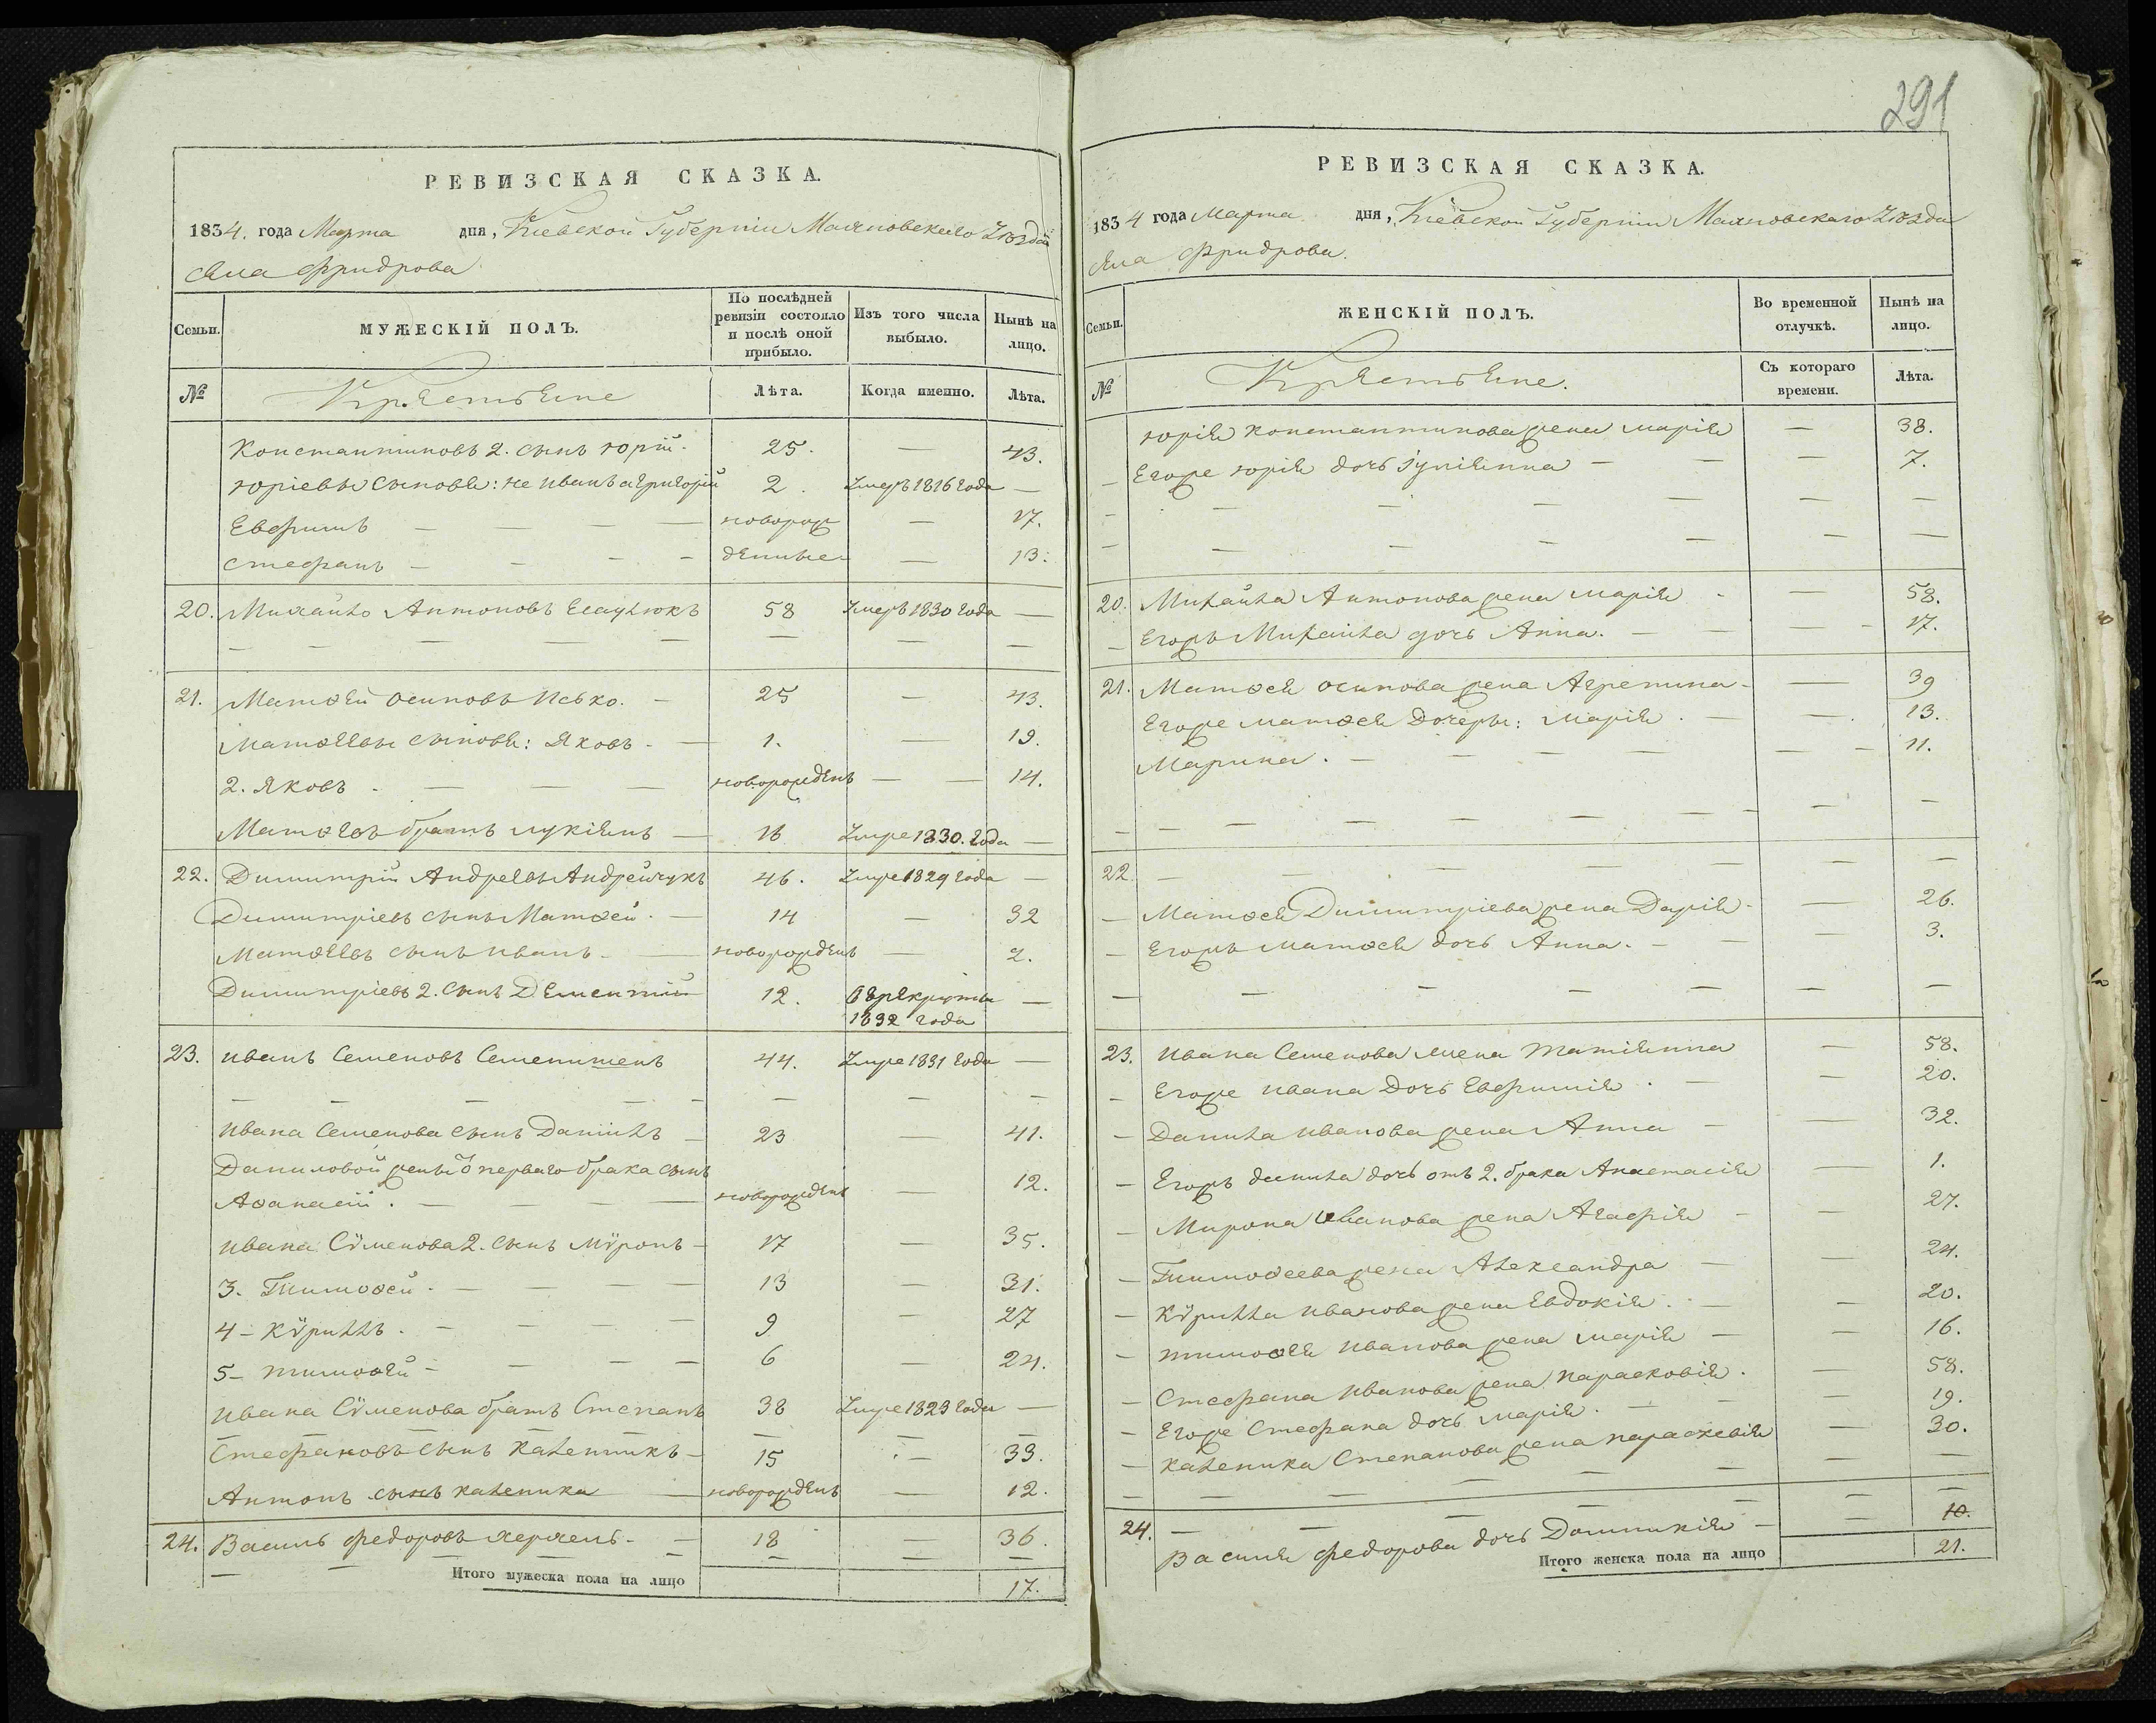 291
РЕВИЗСКАЯ СКАЗКА.
1834. года Марта дня, Кіевской Губерніи Махновскаго Уѣзда
села Фридрова
Семьи. МУЖЕСКІЙ ПОЛЪ. По послѣдней ревизіи состояло и послѣ оной прибыло. Изъ того числа выбыло. Нынѣ на лицо.
№ Крестьяне Лѣта. Когда именно. Лѣта.
Константиновъ 2. сынъ юрій. 25. — 43.
юріевы сыновья: не иванъ а григорій 2. Умеръ 1816 года —
Евфимъ — новорож — 17.
стефанъ — денные — 13.
20. Михайло Антоновъ 58 Умеръ 1830 года —
21. Матѳей осиповъ Исько. — 25 — 43.
Матѳеевы сыновья: Яковъ. — 1. — 19.
2. Яковъ. — новорожденъ — 14.
Матѳеевъ братъ лукіянъ — 16 Умре 1830. года —
22. Димитрій Андреевъ Андрейчукъ 46. Умре 1829 года —
Димитріевъ сынъ Матѳей. — 14 — 32
Матѳеевъ сынъ иванъ. — новорожденъ — 2.
Димитріевъ 2. сынъ Дементий 12. въ рекруты —
1832 года
23. иванъ Семеновъ 44. Умре 1831 года —
ивана Семенова сынъ Данилъ — 23 — 41.
Даниловой жены о перваго брака сынъ
Аѳанасій. — новорожденъ — 12.
ивана Сѵменова 2. сынъ Мѵронъ — 17 — 35.
3. Тимоѳей. — 13 — 31.
4 — Кѵриллъ. — 9 — 27
5 — тимоѳей — 6 — 24.
ивана Сѵменова братъ Степанъ 38 Умре 1823 года —
Стефановъ сынъ каленикъ — 15 — 33.
Антонъ сынъ каленика — новорожденъ — 12.
24. Василь федоровъ — 18 — 36.
Итого мужеска пола на лицо 17.
РЕВИЗСКАЯ СКАЗКА.
1834 года Марта дня, Кіевской Губерніи Махновскаго Уѣзда
села Фридрова.
Семьи. ЖЕНСКІЙ ПОЛЪ. Во временной отлучкѣ. Нынѣ на лицо.
№ Крестьяне. Съ котораго времени. Лѣта.
юрія константинова жена марія — 38.
Егоже юрія дочь іуліянна — 7.
20. Михайла Антонова жена марія — 58.
Егожъ Михайла дочь Анна. — 17.
21. Матѳея осипова жена Агрепина — 39
Егоже матѳея Дочеры: Марія. — 13.
Марина. — 11.
22. —
Матѳея Димитріева жена Дарія — 26.
Егожъ матѳея дочь Анна. — 3.
23. ивана Семенова жена татіянна — 58.
Егоже ивана Дочь Евфимія. — 20.
Данила иванова жена Анна — 32.
Егожъ данила дочь отъ 2. брака Анастасія — 1.
Мирона иванова жена Агафія — 27.
Тимоѳеева жена Александра — 24.
Кѵрилла иванова жена Евдокія. — 20.
тимоѳея иванова жена марія — 16.
Стефана иванова жена парасковія. — 58.
Егоже Стефана дочь марія. — 19.
каленика Степанова жена параскевія — 30.
24. —
Василя федорова дочь Домникія — 10.
Итого женска пола на лицо 21.